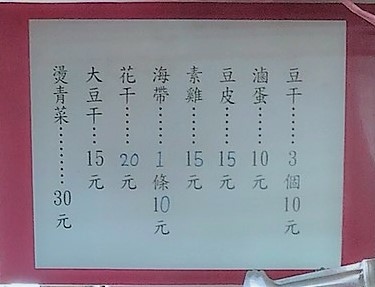 豆干……3個10元
滷蛋……10元
豆皮……15元
素雞……15元
海帶……1條10元
花干……20元
大豆干……15元
燙青菜………30元